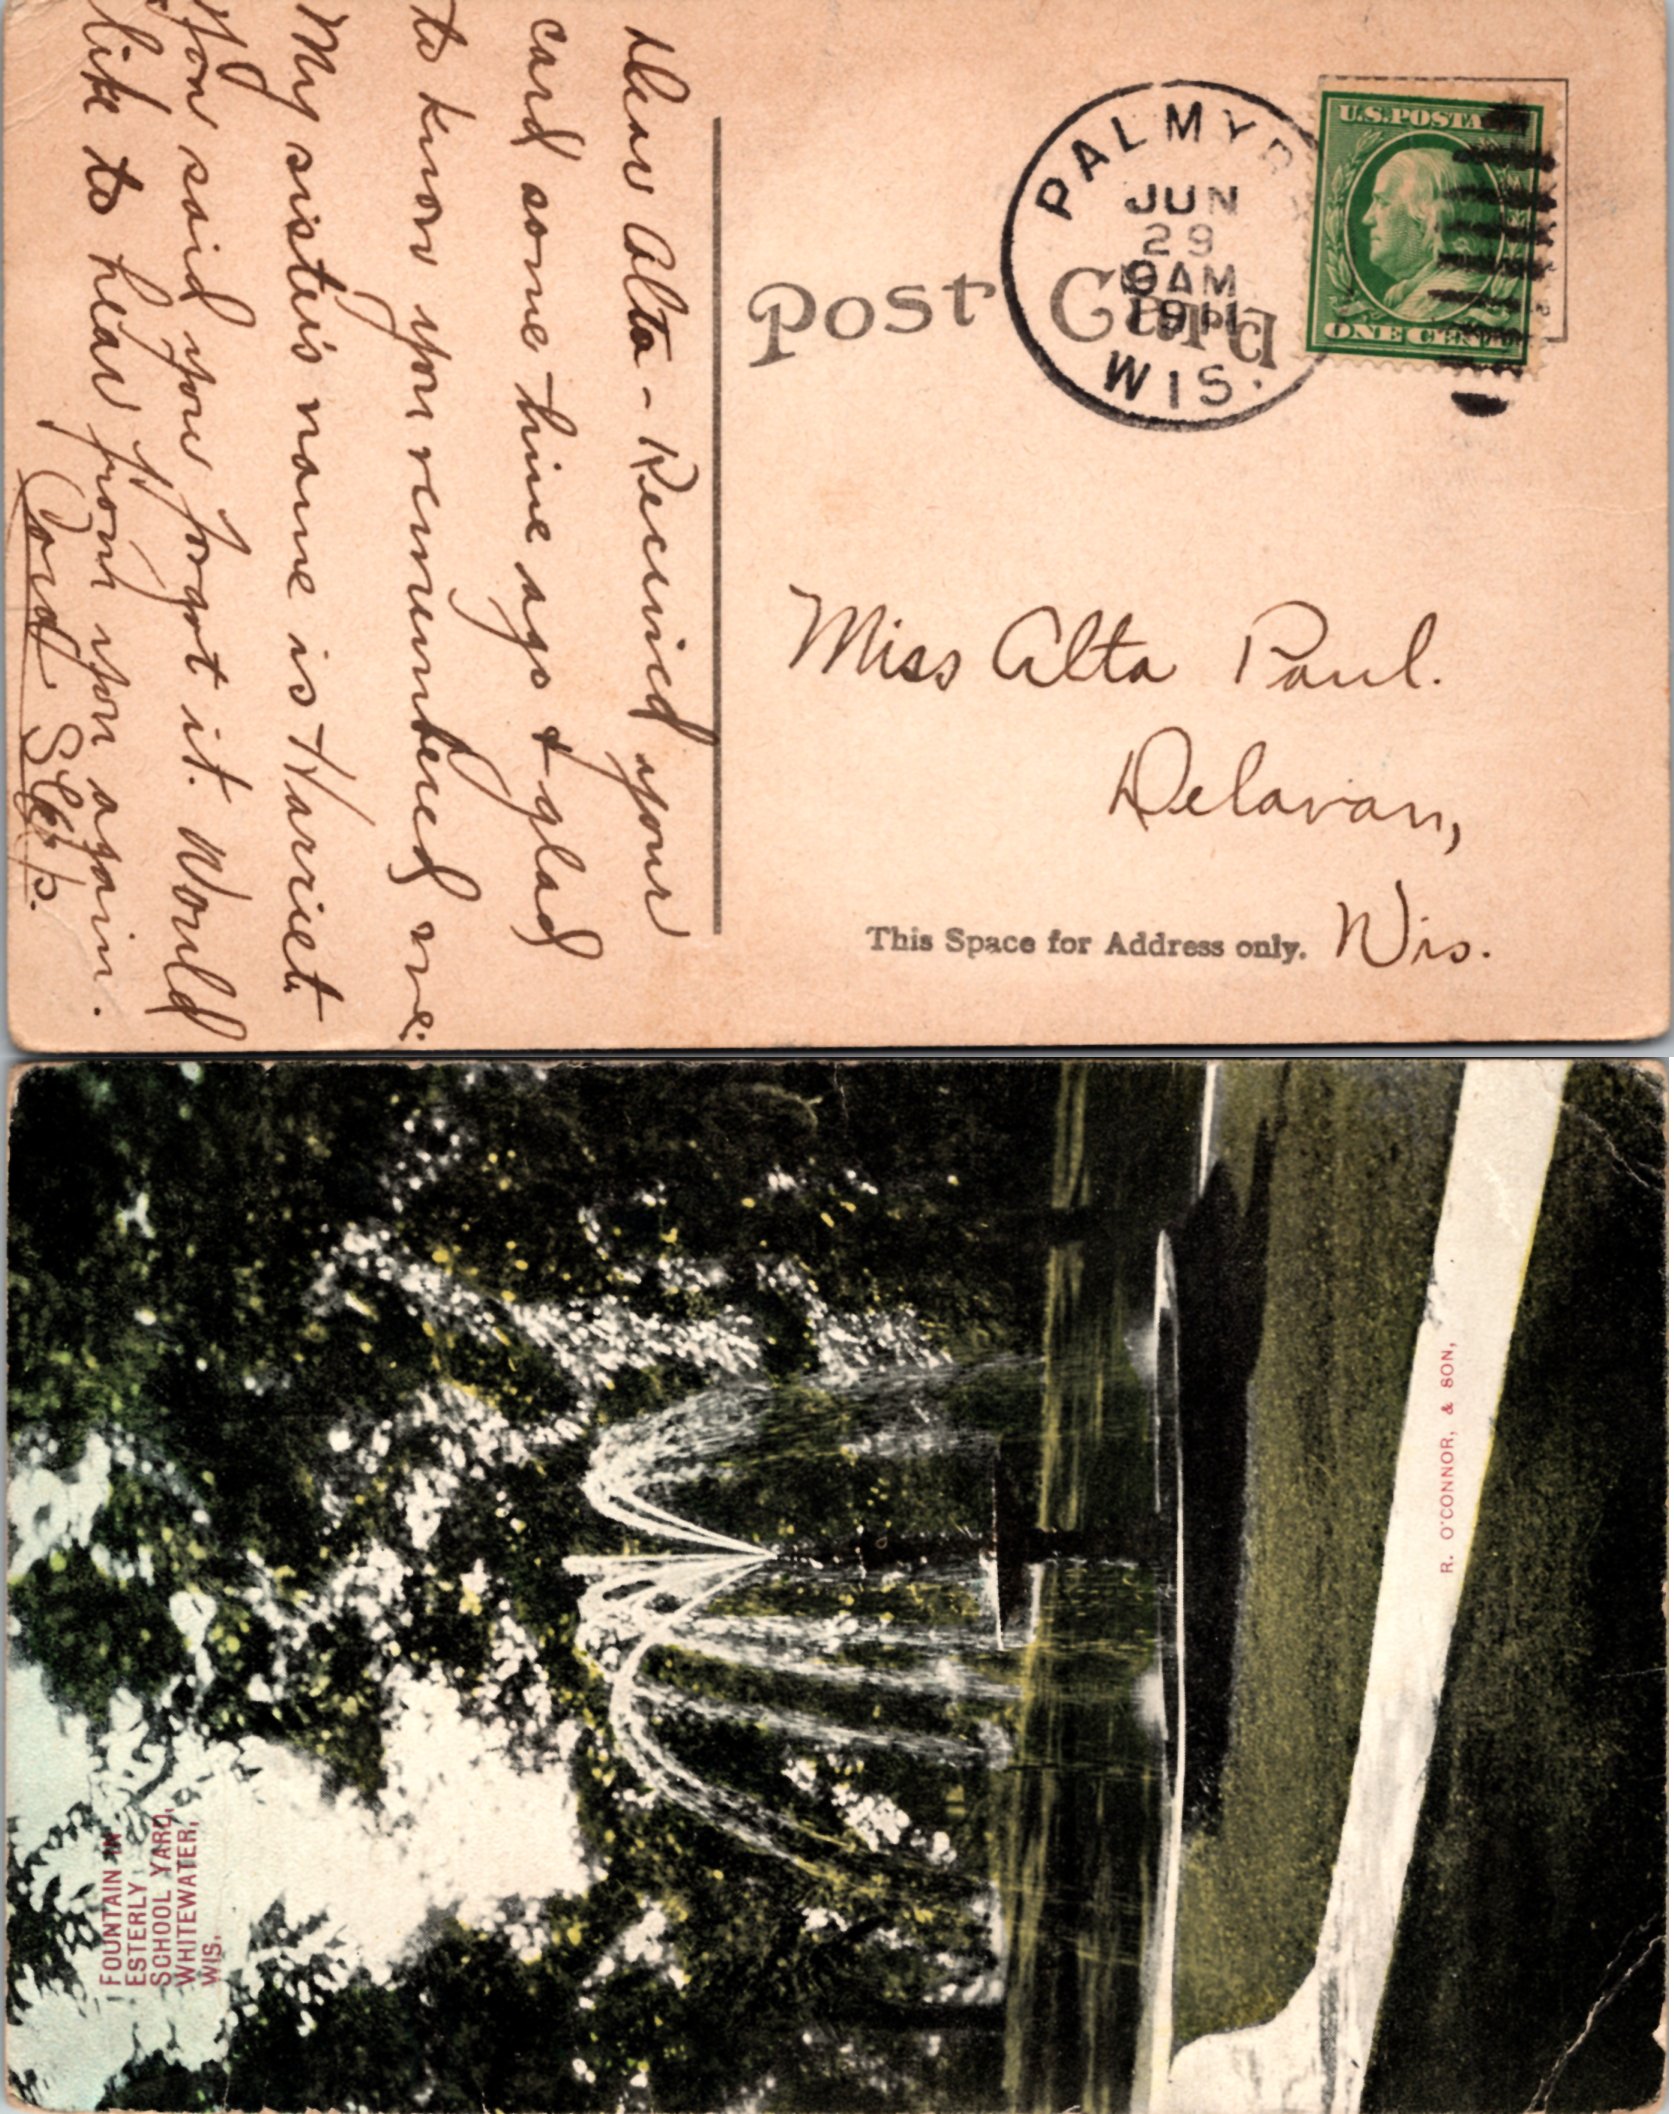 Dear Alta - Received your
card some time ago & glad
to know you remembered me.
My sister's name is Harriet.
You said you forgot it. Would
like to hear from you again.
Cord
Post Card
PALMYRA
JUN
29
9 AM
1911
WIS.
U.S. POSTA
ONE CENT
Miss Alta Paul.
Delavan,
This Space for Address only. Wis.
FOUNTAIN IN
ESTERLY
SCHOOL YARD,
WHITEWATER,
WIS.
R. O'CONNOR, & SON,